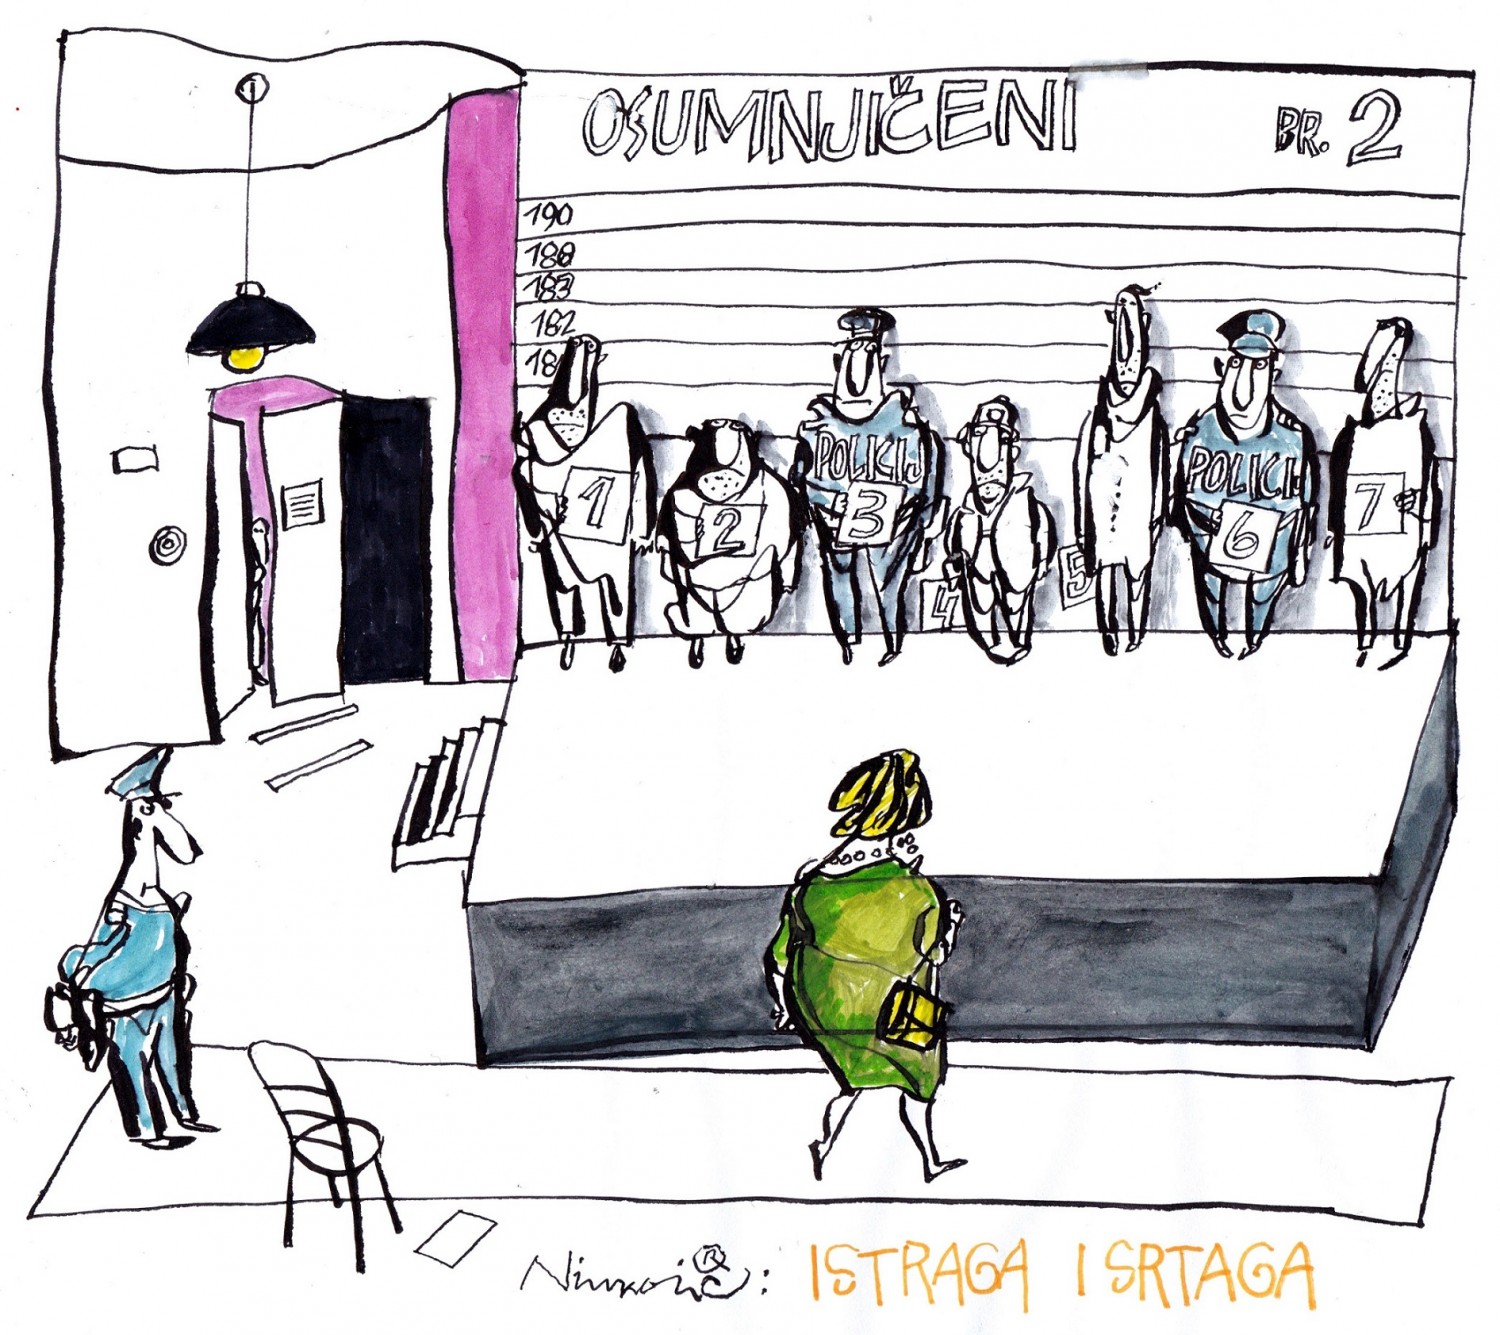 OSUMNJIČENI BR. 2
190
180
183
182
18
POLICIJ
POLICIJ
1
2
3
4
5
6
7
ISTRAGA I SRTAGA